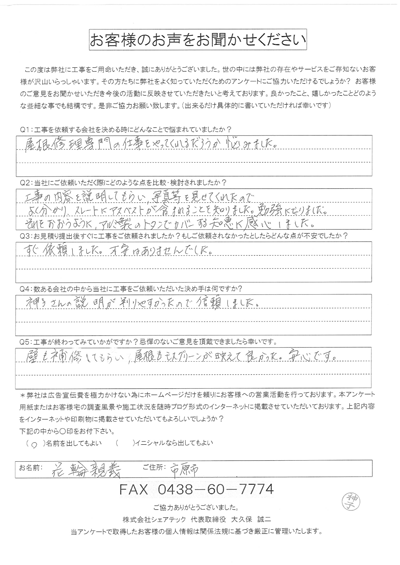 お客様のお声をお聞かせください
この度は弊社に工事をご用命いただき、誠にありがとうございました。世の中には弊社の存在やサービスをご存知ないお客
様が沢山いらっしゃいます。その方たちに弊社をよく知っていただくためのアンケートにご協力いただけるでしょうか? お客様
のご意見をお聞かせいただき今後の活動に反映させていただきたいと考えております。良かったこと、嬉しかったことどのよう
な些細な事でも結構です。是非ご協力お願い致します。(出来るだけ具体的に書いていただければ幸いです)
Q1:工事を依頼する会社を決める時にどんなことで悩まれていましたか?
屋根修理専門の仕事をやってくれるだろうか悩みました。
Q2:当社にご依頼いただく際にどのような点を比較・検討されましたか?
工事の内容を説明してもらい、写真等を見せてくれたので
よく分かり、スレートにアスベストが含まれることを知りました。勉強になりました。
それをおおうように、アルミ製のトタンでカバーする知恵に感心しました。
Q3:お見積り提出後すぐに工事をご依頼されましたか?もしご依頼されなかったとしたらどんな点が不安でしたか?
すぐ依頼しました。不安はありませんでした。
Q4:数ある会社の中から当社に工事をご依頼いただいた決め手は何ですか?
神子さんの説明が判りやすかったので信頼しました。
Q5:工事が終わってみていかがですか?忌保のないご意見を頂戴できましたら幸いです。
壁も補修してもらい、屋根もモスグリーンが映えて良かった。安心です。
*弊社は広告宣伝費を極力かけない為にホームページだけを頼りにお客様への営業活動を行っております。本アンケート
用紙またはお客様宅の調査風景や施工状況を随時ブログ形式のインターネットに掲載させていただいております。上記内容
をインターネットや印刷物に掲載させていただいてもよろしいでしょうか?
下記の中から〇印をお付下さい。
(○)名前を出してもよい ( )イニシャルなら出してもよい
お名前: 花輪親義 ご住所: 市原市
FAX 0438-60-7774
ご協力ありがとうございました。
株式会社シェアテック 代表取締役 大久保 誠二
当アンケートで取得したお客様の個人情報は関係法規に基づき厳正に管理いたします。